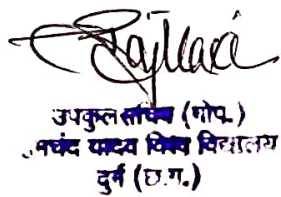 उपकुलसचिव (गोप.)
यादव विश्व विद्यालय
दुर्ग (छ.ग.)